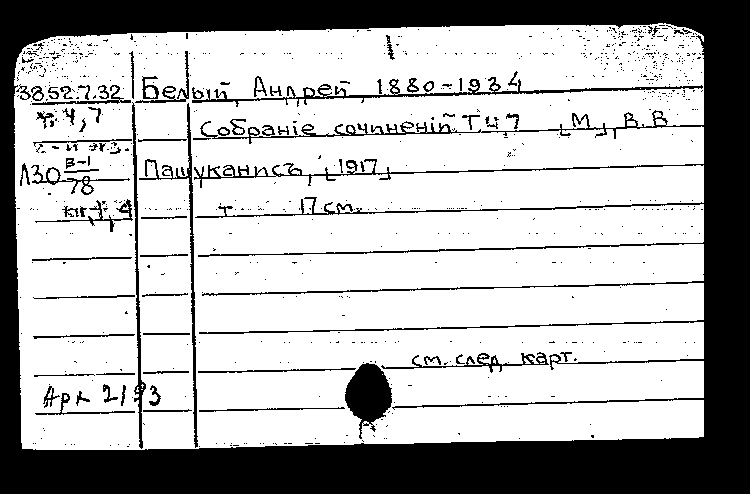 3852.7.32 Белый, Андрей, 1880-1934
т. 4,7 Собраніе сочиненій. Т. 4, 7 [М], В. В
2-й экз.
Л30 В-1/78 Пашуканисъ, [1917]
кн. 7, 4 т 17 см.
см. след. карт.
Арк 2193